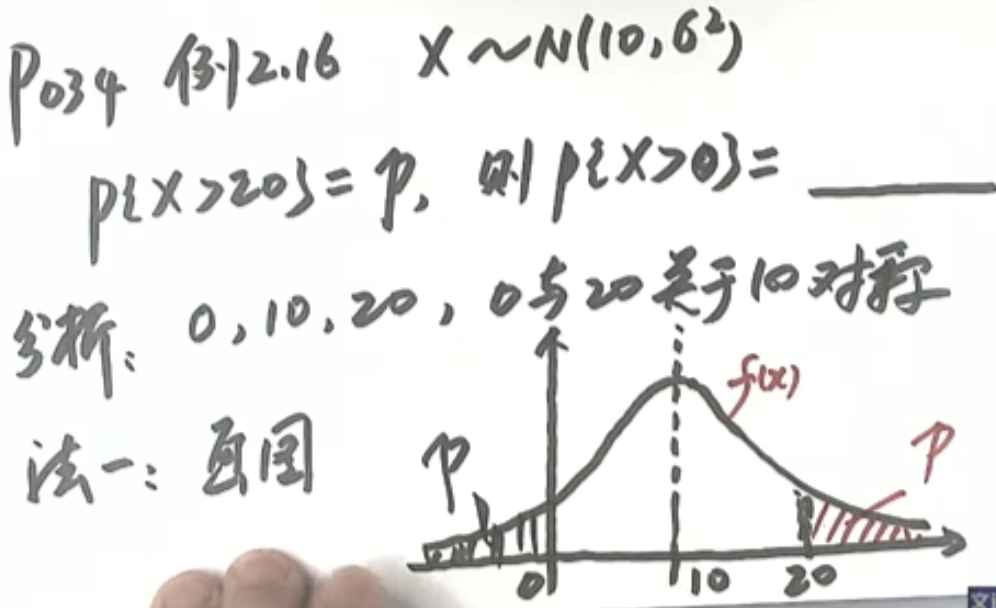 P034 例2.16 X~N(10,6²)
P{X>20}=p, 则P{X>0}=____
分析: 0,10,20, 0与20关于10对称
法一: 画图
f(x)
p
p
0 10 20